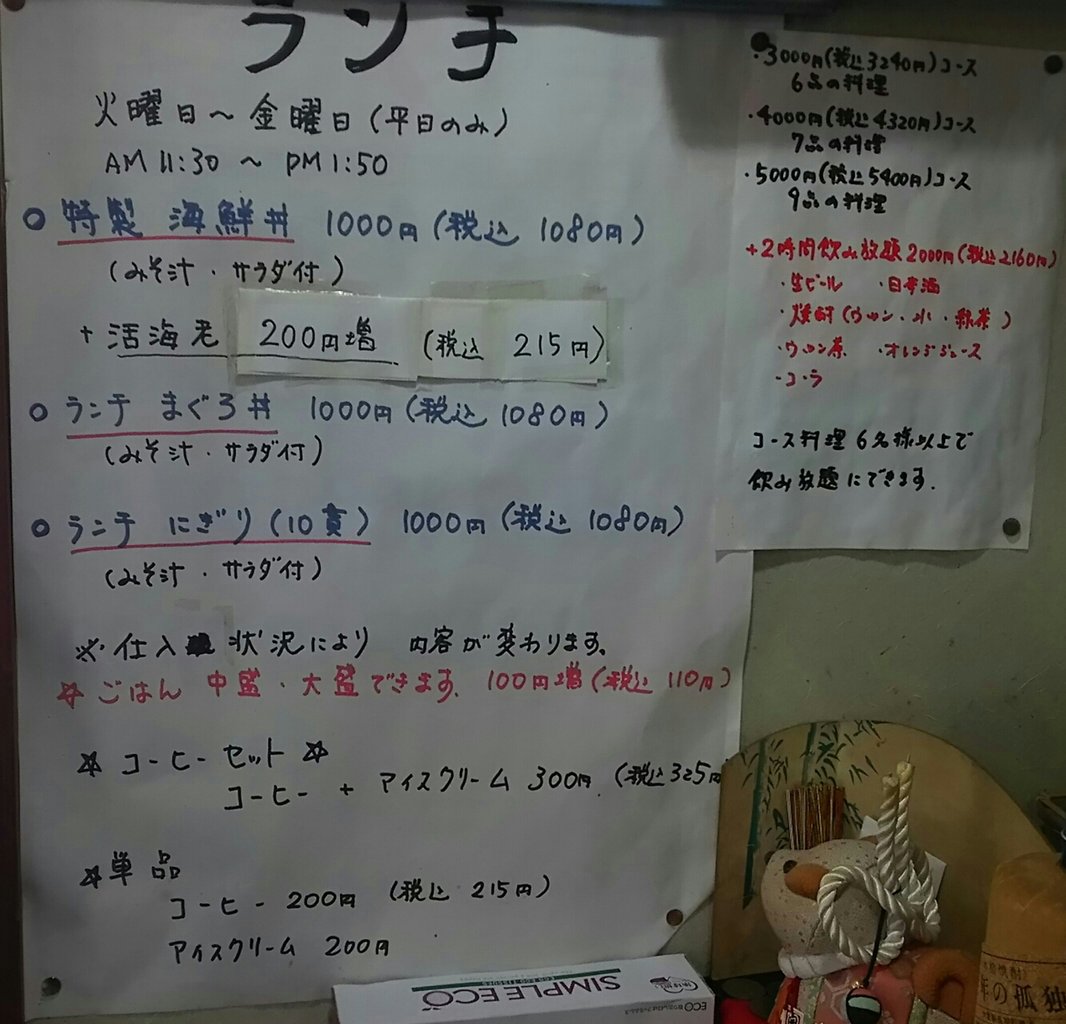 ランチ
火曜日～金曜日(平日のみ)
AM 11:30 ～ PM 1:50
○ 特製 海鮮丼 1000円(税込 1080円)
(みそ汁・サラダ付)
+ 活海老 200円増 (税込 215円)
○ ランチ まぐろ丼 1000円(税込 1080円)
(みそ汁・サラダ付)
○ ランチ にぎり(10貫) 1000円(税込 1080円)
(みそ汁・サラダ付)
※仕入 状況により 内容が変わります。
☆ごはん 中盛・大盛できます. 100円増(税込 110円)
☆ コーヒーセット ☆
コーヒー + アイスクリーム 300円 (税込 325円
☆単品
コーヒー 200円 (税込 215円)
アイスクリーム 200円
・3000円(税込3240円)コース
6品の料理
・4000円(税込4320円)コース
7品の料理
・5000円(税込5400円)コース
9品の料理
+2時間飲み放題2000円(税込2160円)
・生ビール ・日本酒
・焼酎(ウーロン・水・緑茶)
・ウーロン茶 ・オレンジジュース
・コーラ
コース料理6名様以上で
飲み放題にできます.
SIMPLE ECO
ECO
年の孤独